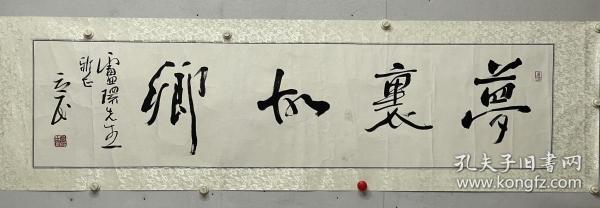 夢裏故鄉
先生
雅正
孔夫子旧书网
www.kongfz.com